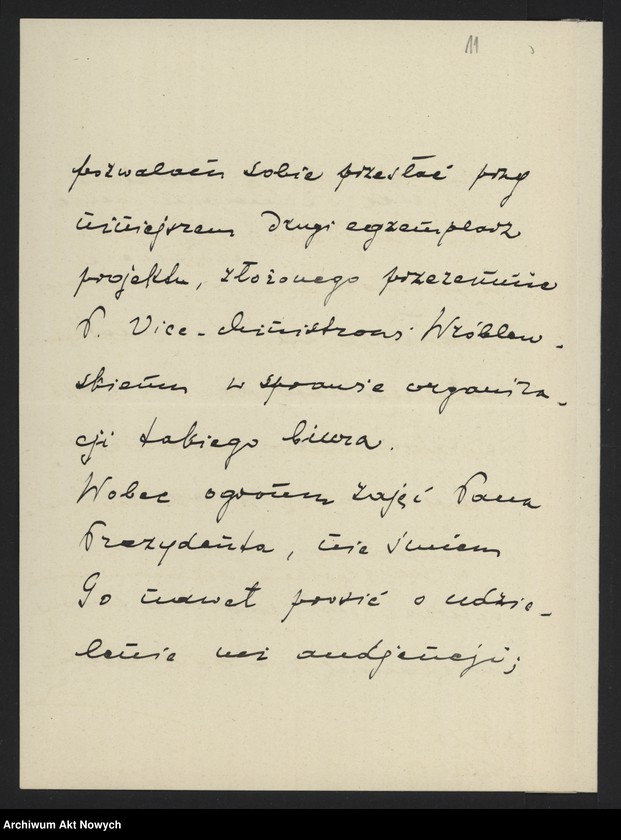 11
pozwalam sobie przesłać przy
niniejszem drugi egzemplarz
projektu, złożonego przezemnie
P. Vice-Ministrowi Wróblew-
skiemu w sprawie organiza-
cji takiego biura.
Wobec ogromu zajęć Pana
Prezydenta, nie śmiem
Go nawet prosić o udzie-
lenie mi audjencji;
Archiwum Akt Nowych